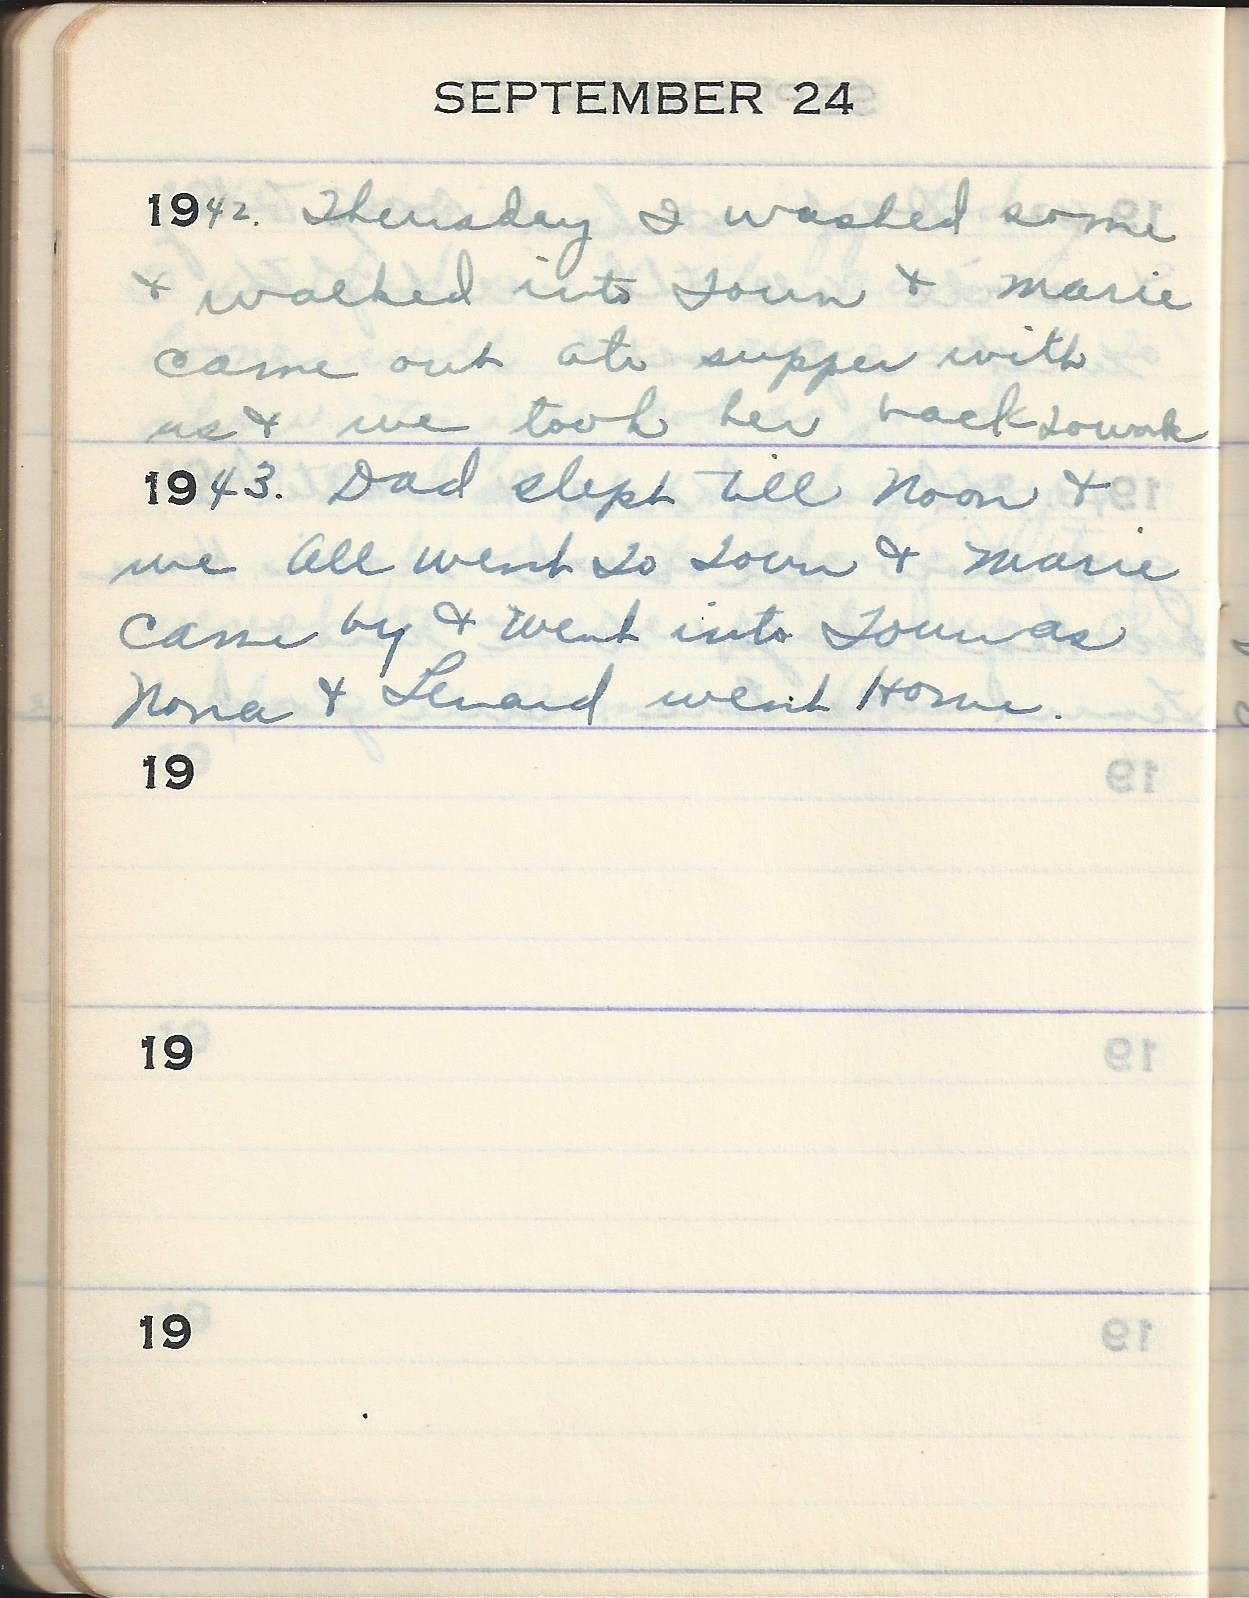 SEPTEMBER 24
1942. Thursday I washed some
& walked into town & Marie
came out ate supper with
us & we took her back
1943. Dad slept till Noon &
we All went to town & Marie
Came by & went into Town as
Nona & Lenard went Home.
19
19
19